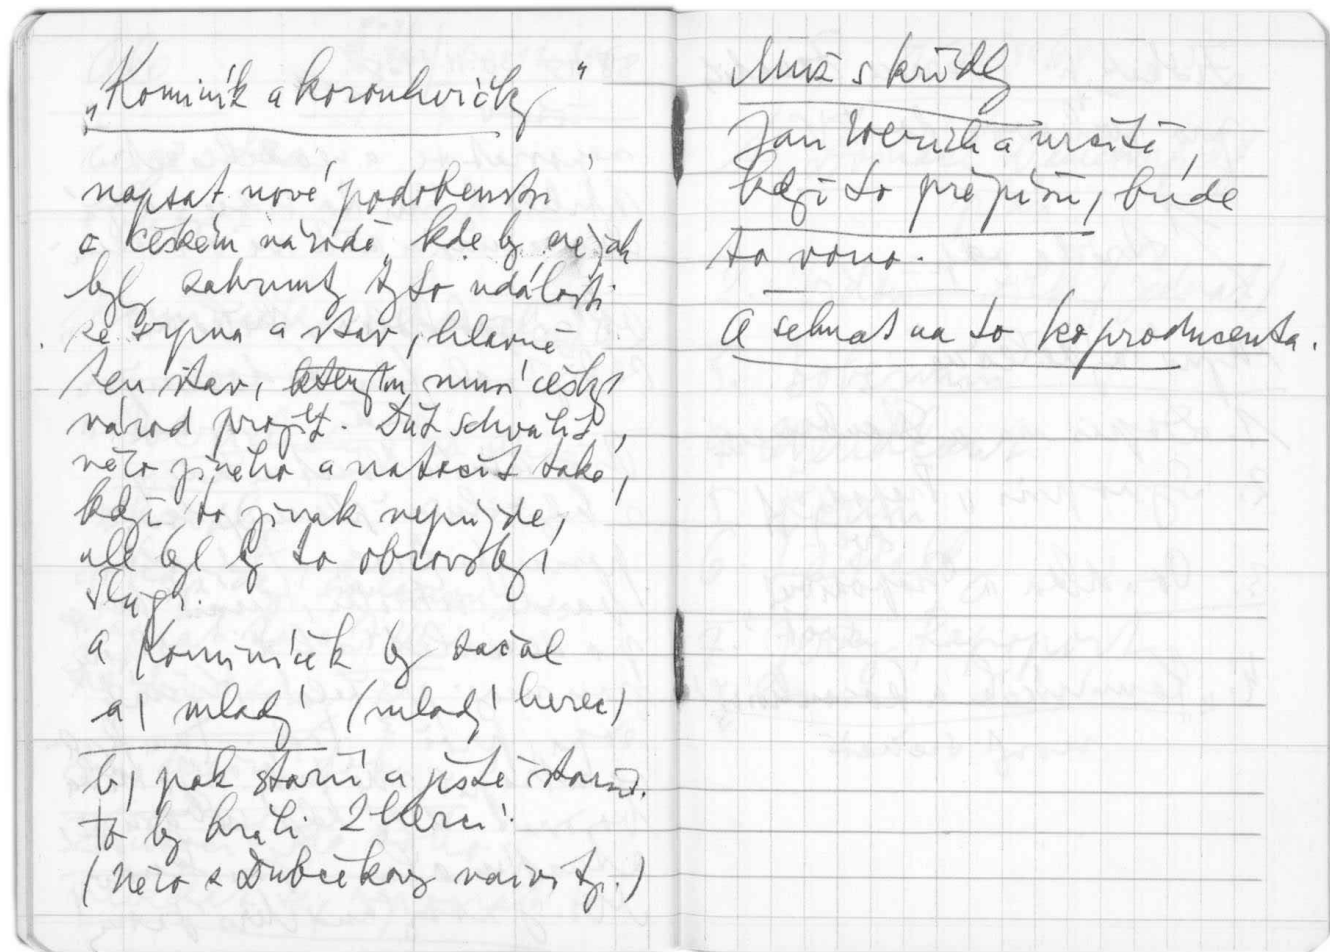 „Kominík a korouhvičky"
napsat nové podobenství
o českém národě, kde by nějak
byly zahrnuty tyto události
ze srpna a stav, hlavně
ten stav, kterým musí český
národ projít. Dát schválit
něco jiného a natočit také,
když to jinak nepůjde,
ale byl by to obrovský
šlágr.
a Kominíček by začal
a) mladý (mladý herec)
b) pak starší a ještě starší.
to by hráli 2 herci.
(něco z Dubčekovy naivity.)
Muž s křídly
Jan Werich a určitě,
když to přepíšu, bude
to vono.
A sehnat na to koproducenta.